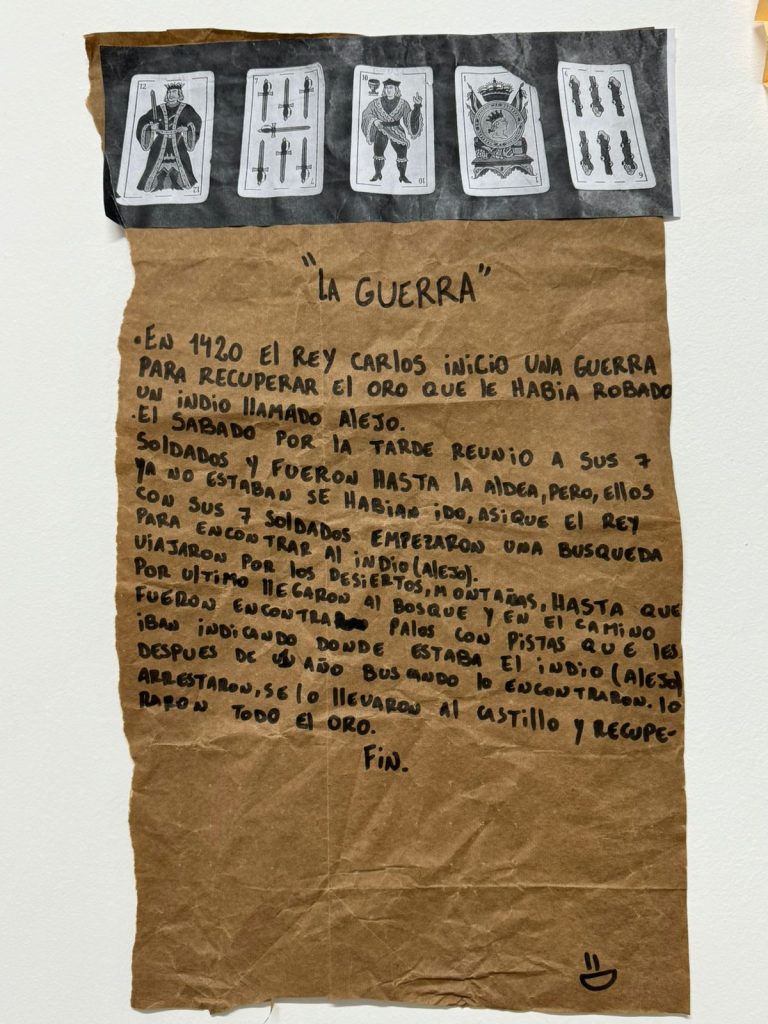 12
12
7
7
10
10
1
1
6
6
"LA GUERRA"
•EN 1420 El REY CARlOS iNiCiO UNA GUERRA
PARA RECUPERAR El ORO QUE lE HABIA ROBADO
UN iNDiO llAMADO AlEJO.
.El SABADO POR lA TARDE REUNiO A SUS 7
SOlDADOS Y FUERON HASTA lA AlDEA, PERO, EllOS
YA NO ESTABAN SE HABIAN iDO, ASiQUE El REY
CON SUS 7 SOlDADOS EMPEZARON UNA BUSQUEDA
PARA ENCONTRAR Al iNDiO (AlEJO).
ViAJARON POR lOS DESiERTOS, MONTAÑAS, HASTA QUE
POR UlTiMO llEGARON Al BOSQUE Y EN El CAMiNO
FUERON ENCONTRA PAlOS CON PiSTAS QUE lES
iBAN iNDiCANDO DONDE ESTABA El iNDiO (AlEJO)
DESPUES DE UN AÑO BUSCANDO lO ENCONTRARON. lO
ARRESTARON, SE lO llEVARON Al CASTillO Y RECUPE-
RARON TODO El ORO.
FiN.